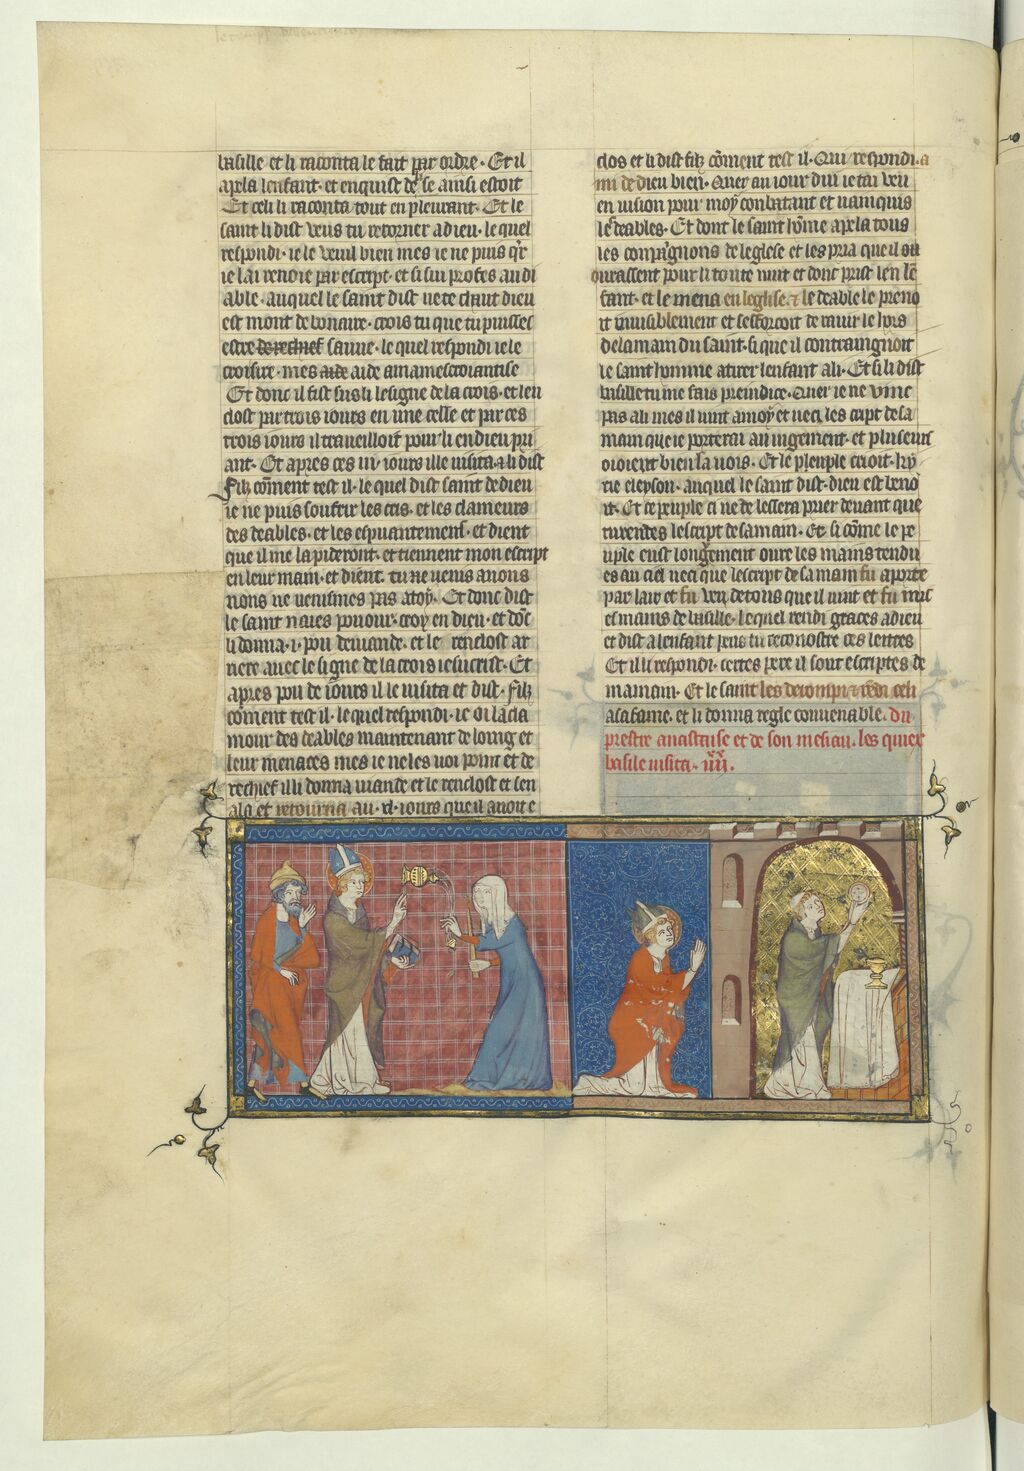 basille et li raconta le fait par ordre. Et il
apela lenfant. et enquist de se ainsi estoit
Et celi li raconta tout en pleurant. Et le
saint li dist veus tu retorner a dieu. le quel
respondi. ie le veuil bien mes ie ne puis qr
ie lai renoie par escript. et si sui profes au di
able. auquel le saint dist ne te chaut dieu
est mont de bonaire. crois tu que tu puisses
estre de rechief sauve. le quel respondi ie le
croi sire. mes aide aide a ma mescroiantise
Et donc il fist sus li le signe de la crois. et len
clost par trois iours en une celle et par ces
trois iours il traueilloit pour li en dieu pri
ant. Et apres ces iii. iours il le uisita. & li dist
Filz coment test il. le quel dist saint de dieu
ie ne puis soufrir les cris. et les clameurs
des deables. et les espuantemens. et dient
que il me lapideront. et tiennent mon escript
en leur main. et dient. tu ne venis a nous
nous ne venismes pas a toy. Et donc dist
le saint naies pouour. croy en dieu. et donc
li donna .i. pou de uiande. et le renclost ar
riere avec le signe de la crois iesucrist. Et
apres pou de iours il le uisita et dist. filz
coment test il. le quel respondi. ie oi la cla
mour des deables maintenant de loing et
leur menaces mes ie ne les uoi point et de
rechief il li donna uiande et le renclost et sen
ala et retourna au .xl. iours que il auoit e
clos et li dist filz coment test il. Qui respondi. a
mi de dieu bien. Quer au iour dui ie tai veu
en uision pour moy conbatant et uainquis
les deables. Et dont le saint home apela tous
les conpaignons de leglese et les pria que il ou
ourassent pour li toute nuit et donc prist len
fant. et le mena en leglise. & le deable le preno
it inuisiblement et sefforcoit de rauir le hors
de la main du saint. si que il contraingnoit
le saint homme a tirer lenfant a li. Et si li dist
basille tu me fais preiudice. Quer ie ne vinc
pas a li mes il uint a moy et ueci les cript de sa
main que ie porterai au iugement. et pluseurs
oioient bien la uois. Et le pleuple crioit. kyr
rie eleyson. auquel le saint dist. dieu est beno
it. Et ce peuple ci ne te lessera prier deuant que
tu rendes lescript de sa main. Et si come le pe
uple eust longement oure les mains tendu
es au ciel ueci que lescript de sa main fu aporte
par lair et fu veu de tous que il uint et fu mis
es mains de basille. lequel rendi graces a dieu
et dist a lenfant peus tu reconostre ces lettres
Et il li respondi. certes pere il sont escriptes de
ma main. Et le saint les derompi & rendi celi
a sa fame. et li donna regle conuenable. du
prestre anastaise et de son mesiau. les quiex
basile uisita.